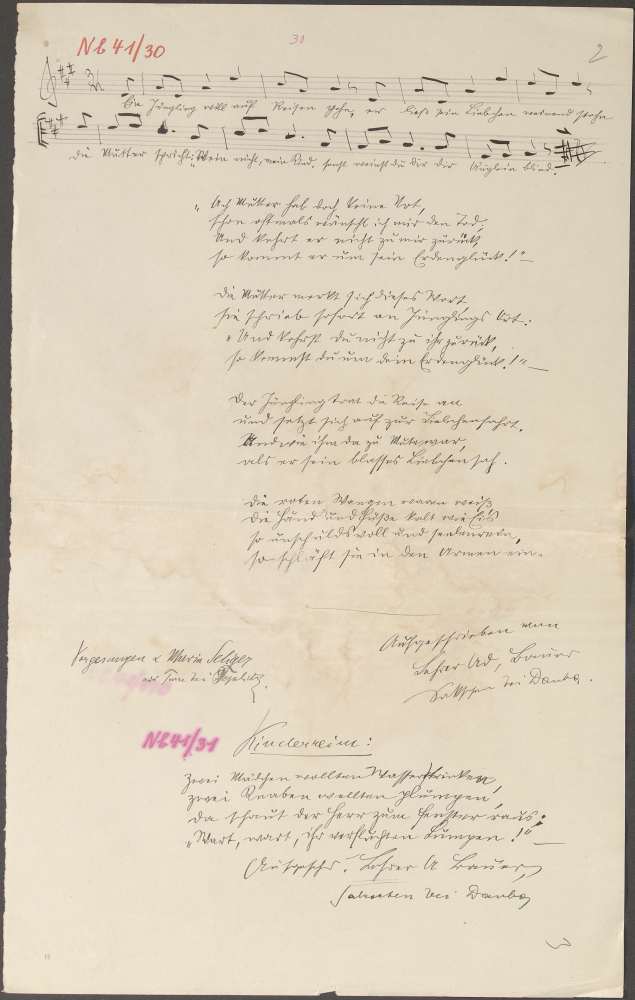 Nb 41/30
30
2
Ein Jüngling wollt auf Reisen gehn, er ließ sein Liebchen weinend stehn
die Mutter spricht: „Wein nicht, mein Kind, sonst weinst du dir die Äuglein blind.
„Ach Mutter hab doch keine Not,
schon oftmals wünscht ich mir den Tod,
Und kehrt er nicht zu mir zurück,
so kommt er um sein Erdenglück!" –
Die Mutter merkt sich dieses Wort
sie schrieb sofort an Jünglings Ort:
„Und kehrst du nicht zu ihr zurück,
so kommst du um dein Erdenglück!" –
Der Jüngling trat die Reise an
und setzt sich auf zur
Und wie ihm da zu Mute war,
als er sein blasses Liebchen sah.
Die roten Wangen waren weiß
die Händ und Füße kalt wie Eis
so unschuldsvoll und seelenrein,
so schläft sie in den Armen ein.
Aufgeschrieben von
Lehrer Ad. Bauer
bei Dauba.
Vorgesungen v. Maria
aus bei
Nb 41/31 Kinderreim:
Zwei Mädchen wollten Wasser trinken,
zwei Knaben wollten plumpen,
da schaut der Herr zum Fenster raus:
„Wart, wart, ihr verfluchten Lumpen!" –
Aufgeschr. Lehrer A Bauer,
bei Dauba